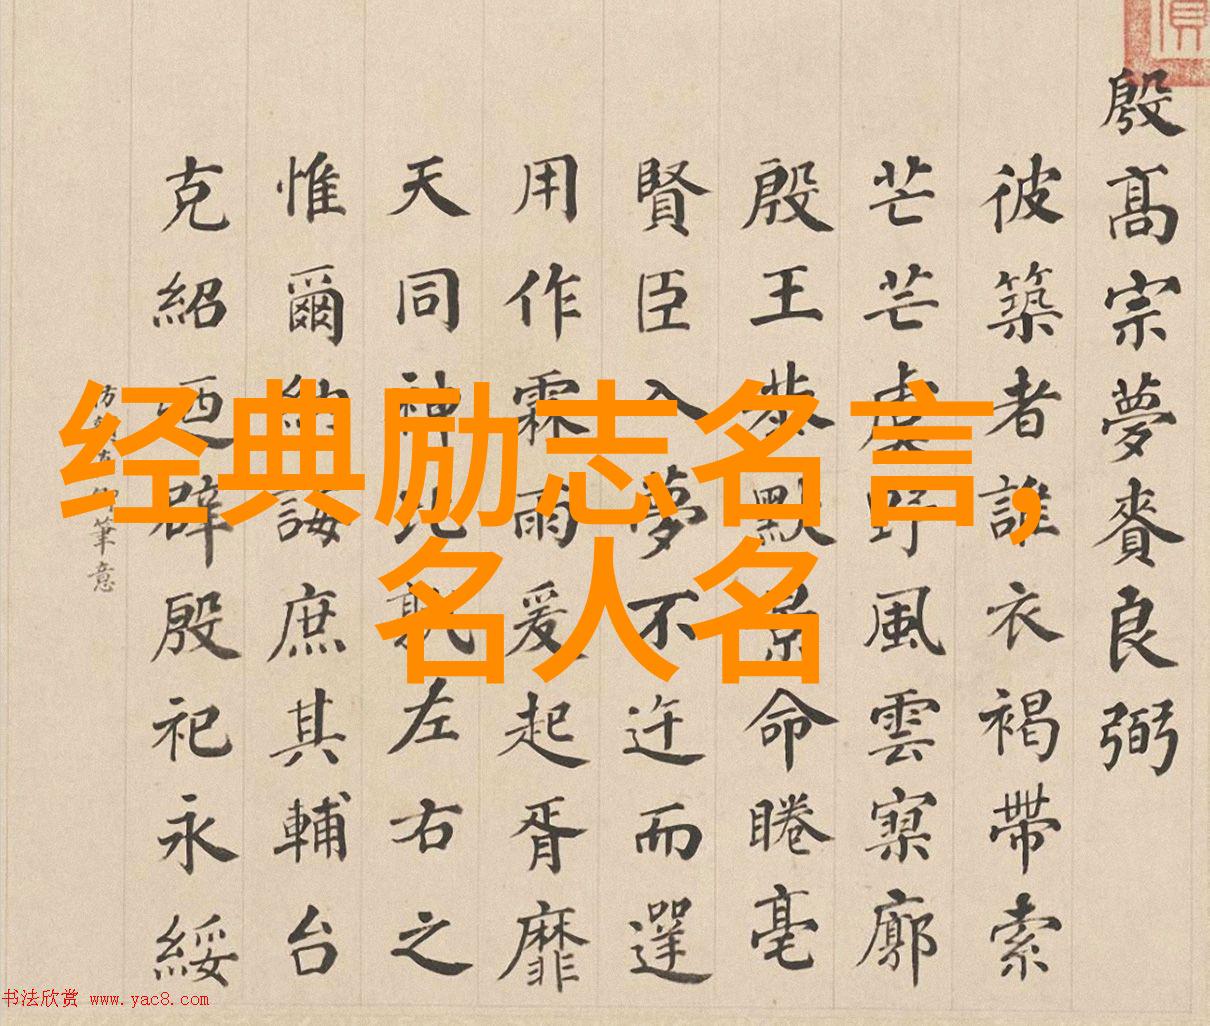 殷髙宗夢賚良弼
彼築者誰衣褐帶索
芒芒虞野風雲寥廓
殷王恭默景命睠亳
賢臣入夢不迕而遻
用作霖雨爰起胥靡
天同神左右之
惟爾納誨庶其輔台
克紹廼辟殷祀永綏
筆意
经典励志名言,
名人名
书法欣赏 www.yac8.com